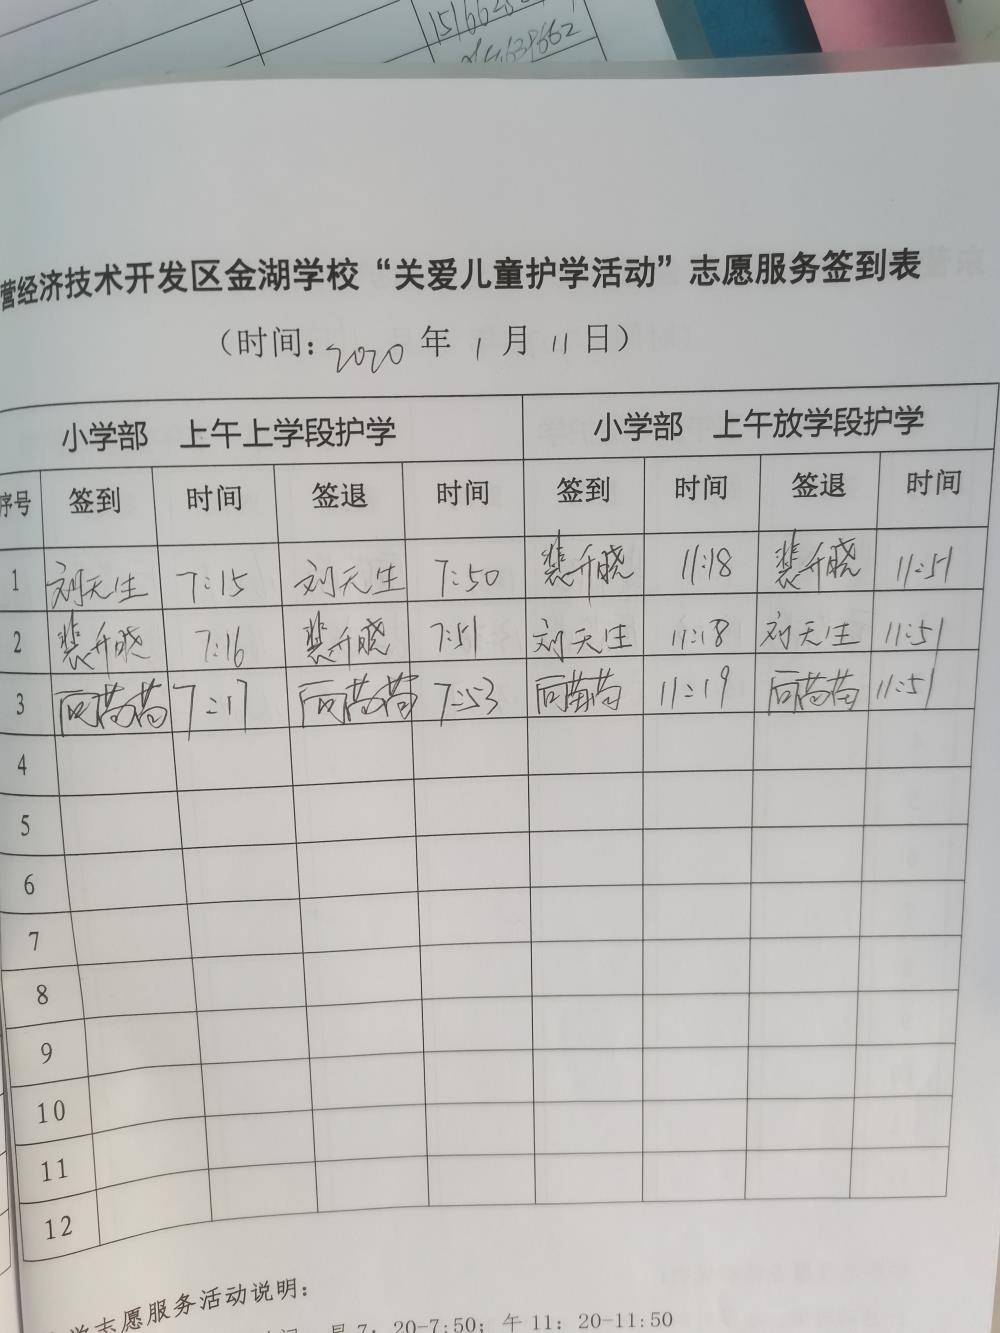 营经济技术开发区金湖学校“关爱儿童护学活动”志愿服务签到表
（时间：2020年 1 月 11 日）
小学部 上午上学段护学 小学部 上午放学段护学
序号 签到 时间 签退 时间 签到 时间 签退 时间
1 刘天生 7:15 刘天生 7:50 裴升晓 11:18 裴升晓 11:51
2 裴升晓 7:16 裴升晓 7:51 刘天生 11:18 刘天生 11:51
3 苗苗 7:17 苗苗 7:53 苗苗 11:19 苗苗 11:51
4
5
6
7
8
9
10
11
12
学志愿服务活动说明：
早7：20-7:50；午11：20-11:50